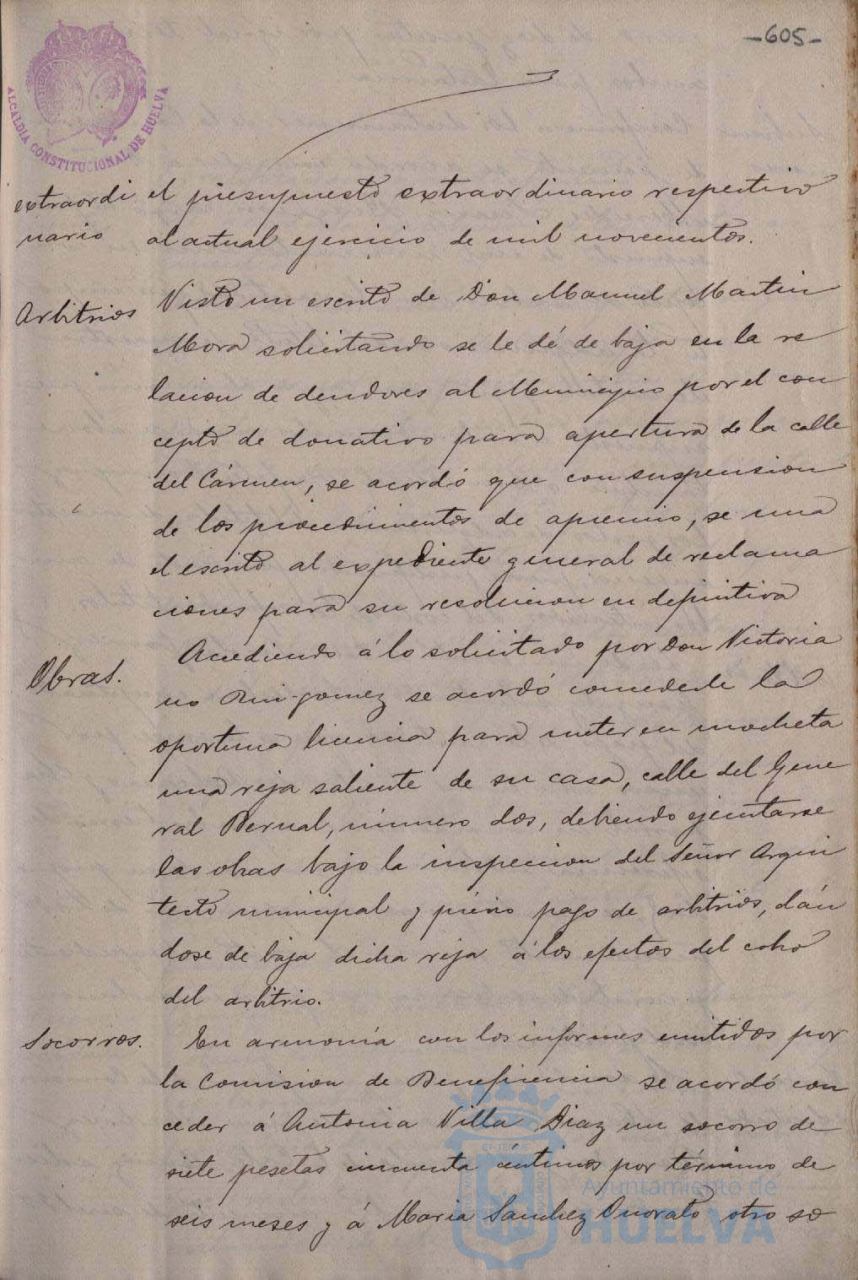 -605-
ALCALDIA CONSTITUCIONAL DE HUELVA
extraordi
nario
el presupuesto extraordinario respectivo
al actual ejercicio de mil novecientos.
Arbitrios
Visto un escrito de Don Manuel Martin
Mora solicitando se le dé de baja en la re
lacion de deudores al Municipio por el con
cepto de donativo para apertura de la calle
del Cármen, se acordó que con suspension
de los procedimientos de apremio, se una
el escrito al expediente general de reclama
ciones para su resolucion en definitiva
Obras.
Accediendo á lo solicitado por Don Victoria
no Ruigomez se acordó concederle la
oportuna licencia para meter en mocheta
una reja saliente de su casa, calle del Gene
ral Bernal, número dos, debiendo ejecutarse
las obras bajo la inspeccion del Señor Arqui
tecto municipal y prévio pago de arbitrios, dán
dose de baja dicha reja á los efectos del cobro
del arbitrio.
Socorros.
En armonía con los informes emitidos por
la Comision de Beneficencia se acordó con
ceder á Antonia Villa Diaz un socorro de
siete pesetas cincuenta céntimos por término de
seis meses y á Maria Sanchez Onorato otro so
Ayuntamiento de
HUELVA